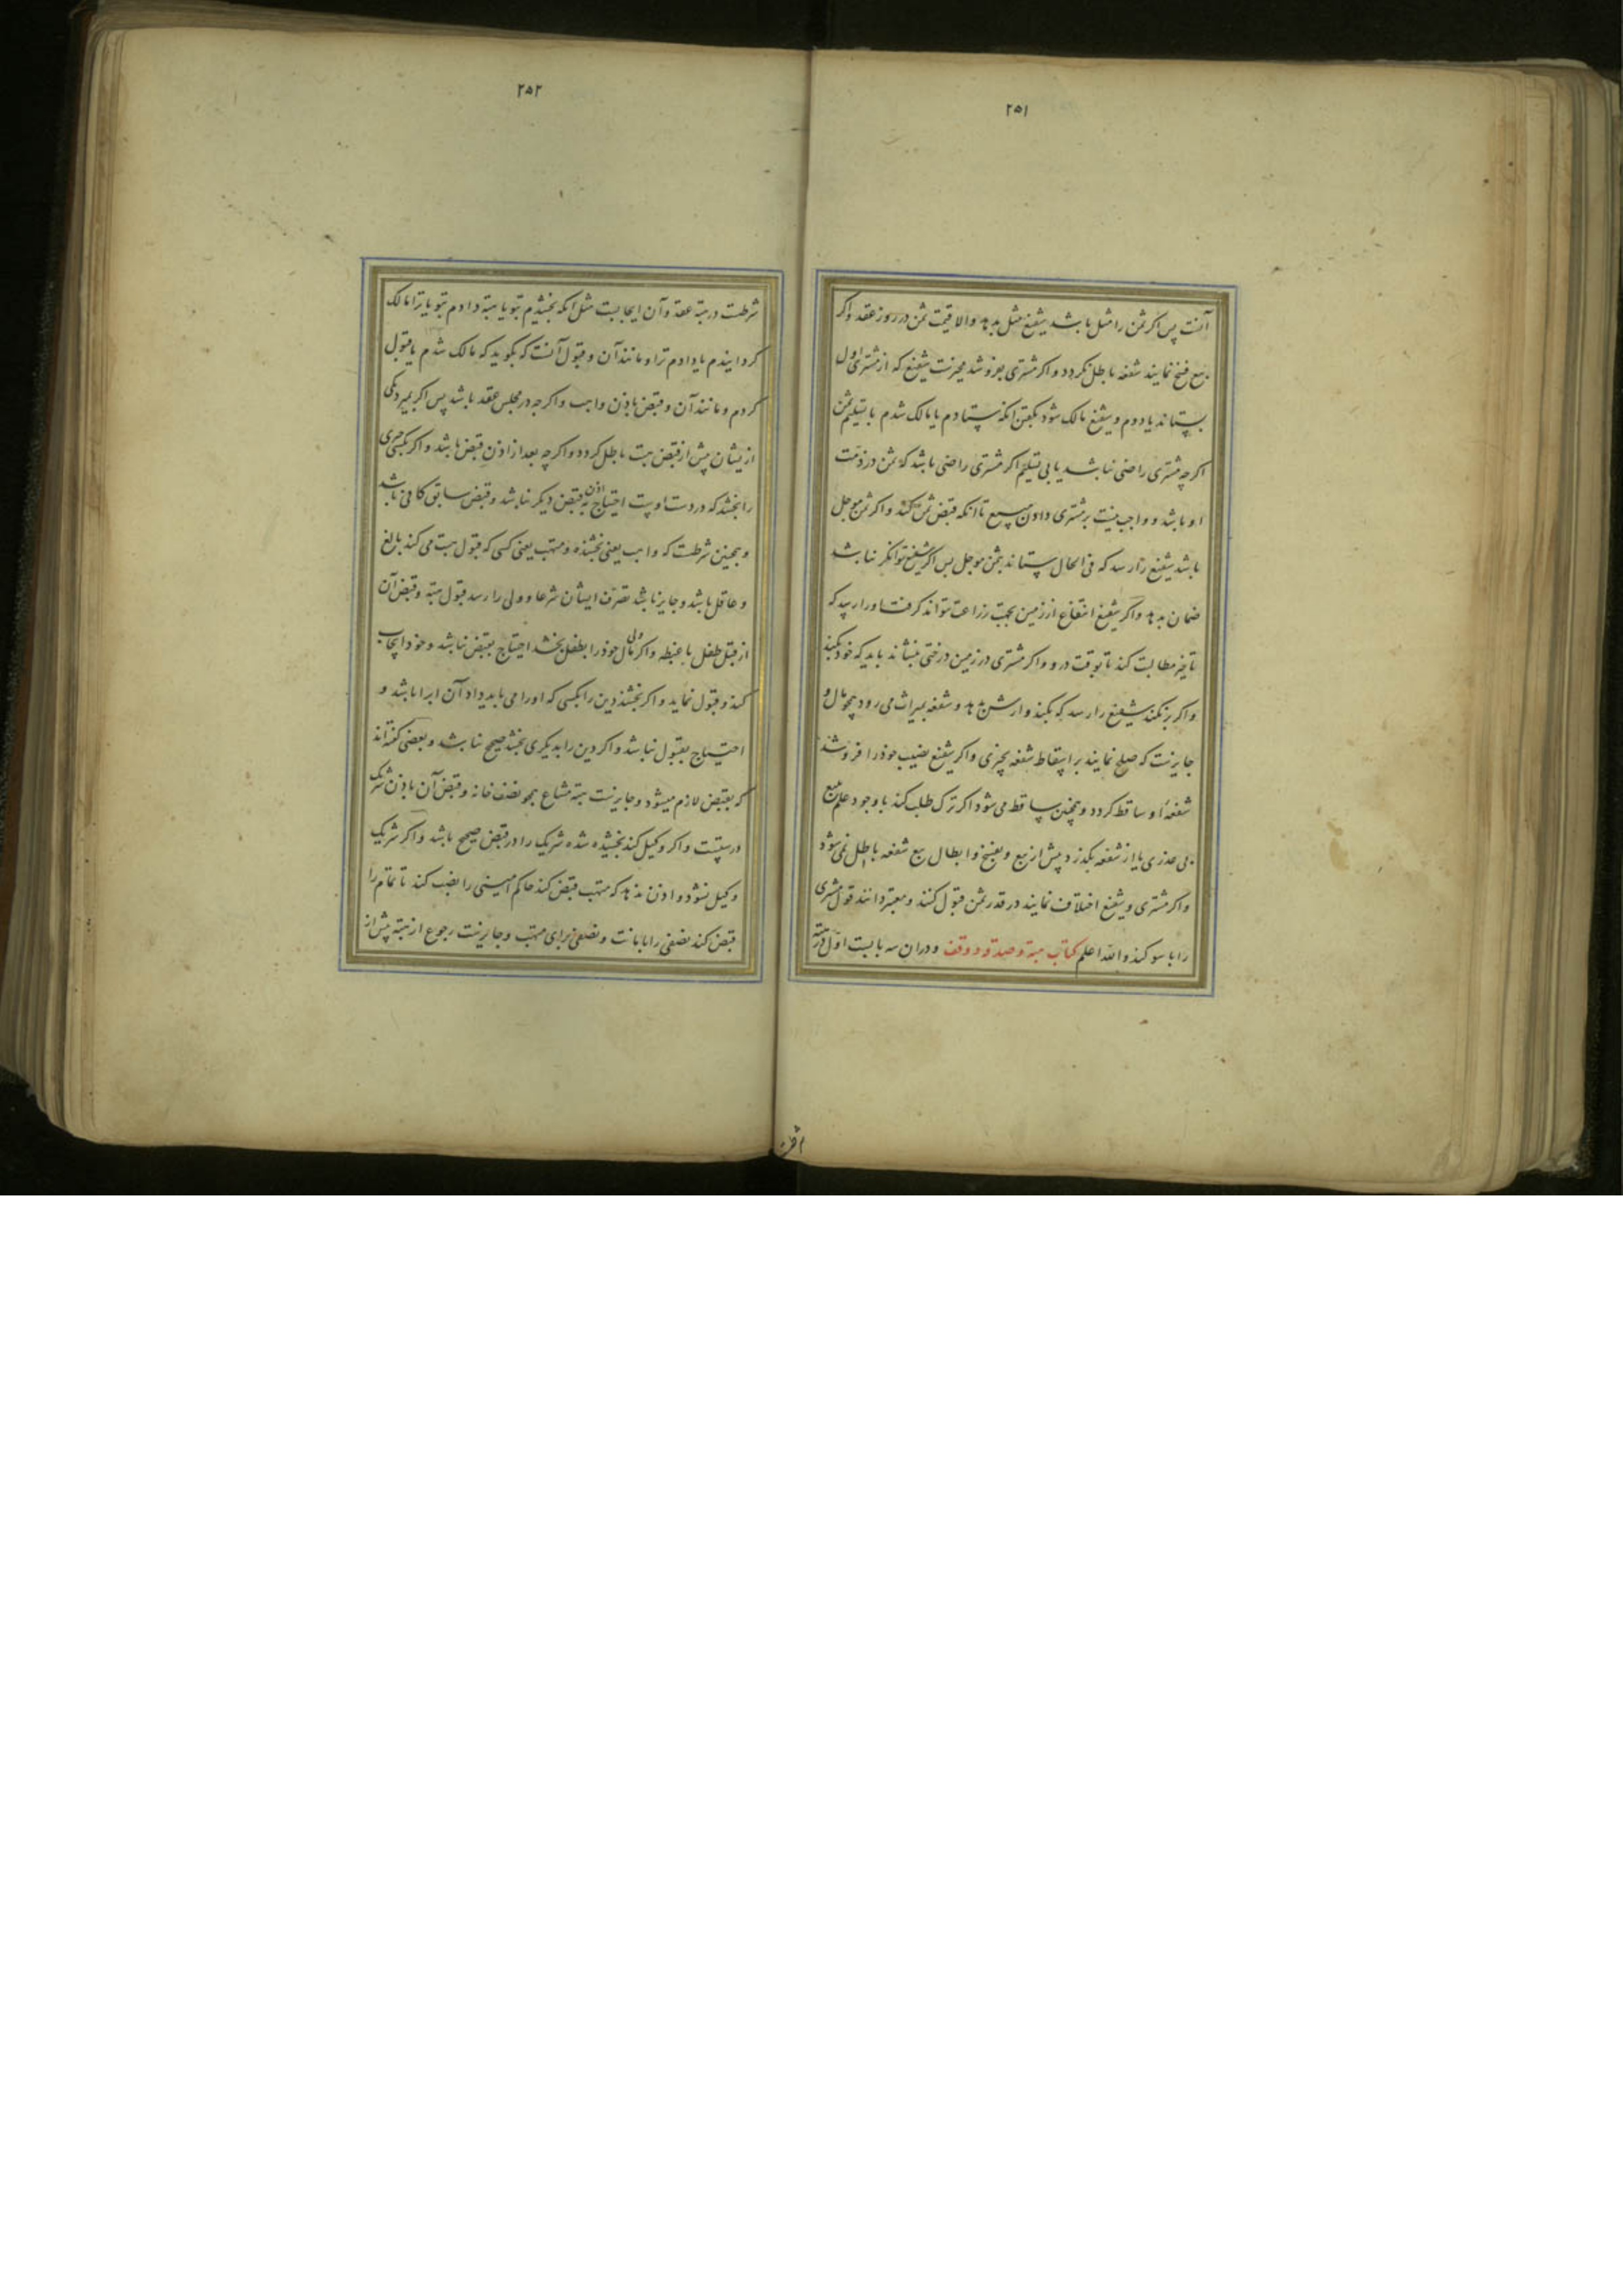 ۲۵۱
آنست پس اکر ثمن را مثل باشد شفیع مثل بدهد والا قیمت ثمن در روز عقد واکر
بیع فسخ نمایند شفعه باطل نکردد و اکر مشتری بفروشد مخیرست شفیع که از مشتری اول
بستاند یا دوم و شفیع مالک شود بکفتن آنکه ستادم یا مالک شدم با تسلیم ثمن
اکرچه مشتری راضی نباشد یا بی تسلیم اکر مشتری راضی باشد که ثمن در ذمت
او باشد و واجب نیست بر مشتری دادن مبیع تا آنکه قبض ثمن کند و اکر ثمن موجل
باشد شفیع را رسد که فی الحال بستاند بثمن موجل پس اکر شفیع توانکر نباشد
ضمان بدهد واکر شفیع انتفاع از زمین بجهت زراعت نتواند کرفت اورا رسد که
تاخیر مطالبت کند تا بوقت درو و اکر مشتری در زمین درختی بنشاند باید که خود بکند
واکر نکند شفیع را رسد که بکند وارش بدهد و شفعه بمیراث می رود همچو مال و
جایزست که صلح نمایند بر اسقاط شفعه بچیزی واکر شفیع نصیب خود را فروشد
شفعهٔ او ساقط کردد و همچنین ساقط می شود اکر ترک طلب کند با وجود علم ببیع
بی عذری یا از شفعه بکذرد پیش از بیع و بفسخ و ابطال بیع شفعه باطل نمی شود
واکر مشتری و شفیع اختلاف نمایند در قدر ثمن قبول کنند و معتبر دانند قول مشتری
را با سوکند والله اعلم کتاب هبة و صدقه و وقف و دران سه بابست اول در هبة
۲۵۲
شرطست در هبة عقد و آن ایجابست مثل آنکه بخشیدم بتو یا هبة دادم بتو یا ترا مالک
کردانیدم یا دادم ترا و مانند آن و قبول آنست که بکوید که مالک شدم یا قبول
کردم و مانند آن و قبض باذن واهب واکرچه در مجلس عقد باشد پس اکر بمیرد یکی
ازیشان پیش از قبض هبت باطل کردد واکرچه بعد از اذن قبض باشد واکر بکسی چیزی
را بخشد که در دست اوست احتیاج به اذن قبض دیکر نباشد و قبض سابق کافی باشد
و همچنین شرطست که واهب یعنی بخشنده و متهب یعنی کسی که قبول هبت می کند بالغ
و عاقل باشد و جایز باشد تصرف ایشان شرعا و ولی را رسد قبول هبة و قبض آن
از قبل طفل با غبطه واکر ولی مال خود را بطفل بخشد احتیاج بقبض نباشد و خود ایجاب
کند و قبول نماید واکر بخشند دین را بکسی که اورا می باید داد آن ابرا باشد و
احتیاج بقبول نباشد واکر دین را بدیکری بخشد صحیح نباشد و بعضی کفته اند
که بقبض لازم میشود و جایزست هبة مشاع همچو نصف خانه و قبض آن باذن شریک
درستست واکر وکیل کند بخشیده شده شریک را در قبض صحیح باشد واکر شریک
وکیل نشود و اذن ندهد که متهب قبض کند حاکم امینی را نصب کند تا تمام را
قبض کند نصفی را بامانت و نصفی برای متهب و جایزست رجوع از هبة پیش از